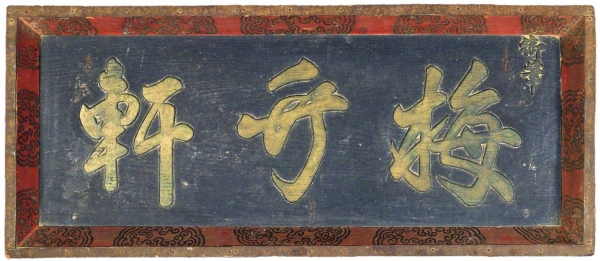 御筆
梅軒